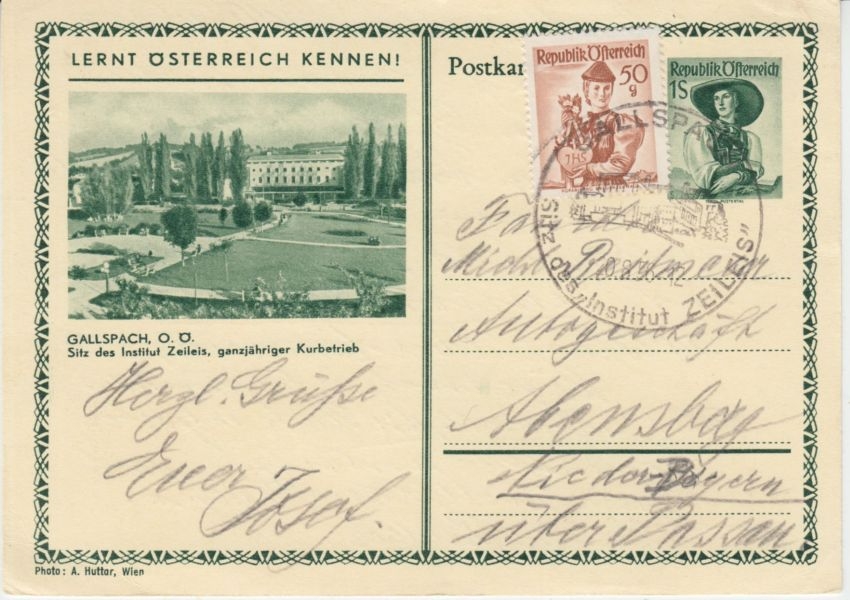 LERNT ÖSTERREICH KENNEN!
GALLSPACH, O. Ö.
Sitz des Institut Zeileis, ganzjähriger Kurbetrieb
Herzl. Grüße
Euer
Josef.
Photo: A. Huttar, Wien
Postkar
Republik Österreich
50 g
Republik Österreich
1 S
GALLSPAC
Sitz des „Institut ZEILEIS"
Michl
Autogeschäft
Abensberg
Nieder-Bayern
über Passau